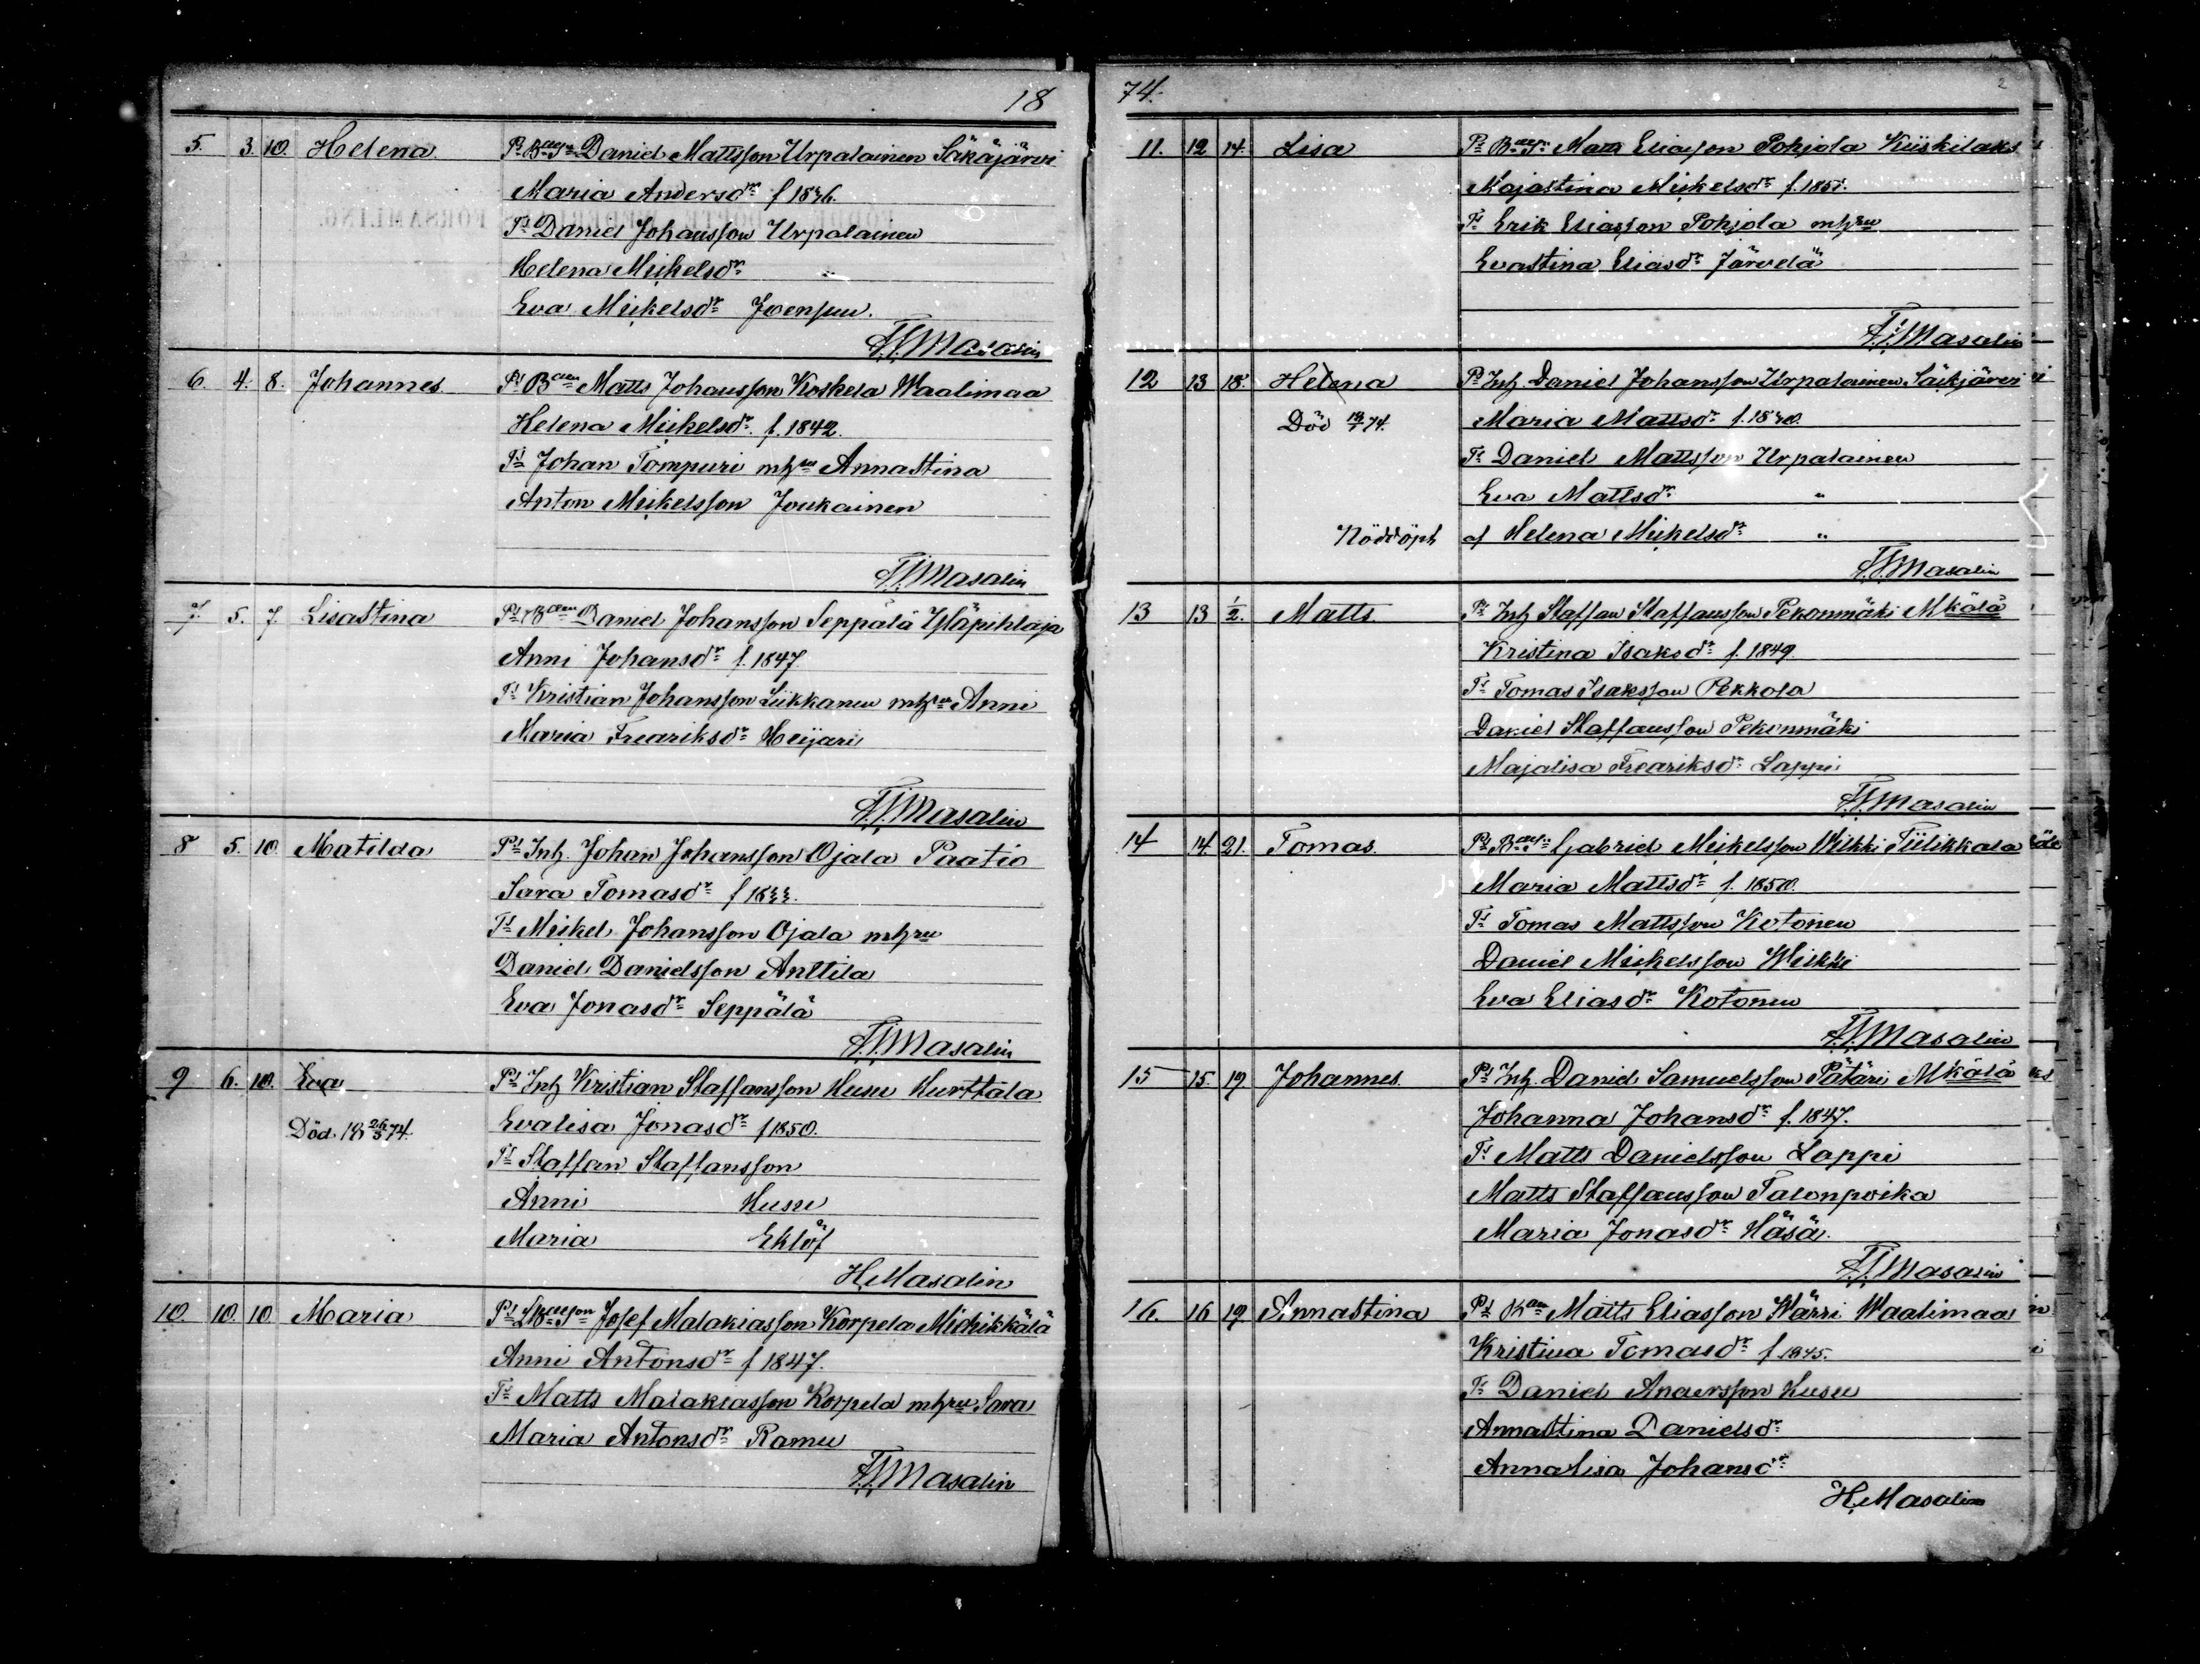 18
5. 3. 10. Helena. Daniel Mattsson Urpalainen Säkäjärvi
Maria Andersdr f 1836.
Ts Daniel Johansson Urpalainen
Helena Mickelsdr "
Eva Mickelsdr Joensuu.
Masalin
6. 4. 8. Johannes. Ps Matts Johansson Koskela Waalimaa
Helena Mickelsdr. f. 1842.
Ts Johan Tompuri mhru Annastina
Anton Mickelsson Joukainen
Masalin
7. 5. 7. Lisastina Ps Daniel Johansson Seppälä Yläpihlaja
Anni Johansdr f. 1847.
Ts Kristian Johansson Liikkanen mhru Anni
Maria Fredriksdr Heijari
Masalin
8 5. 10. Matilda Ps Inh. Johan Johansson Ojala Paatio
Sara Tomasdr f 1833.
Ts Mickel Johansson Ojala mhru
Daniel Danielsson Anttila
Eva Jonasdr Seppälä
Masalin
9 6. 10. Eva Ps Inh Kristian Staffansson Husu Hurttala
Död. 18 26/3 74. Evalisa Jonasdr f 1850.
Ts Staffan Staffansson
Anni Husu
Maria Eklöf
H. Masalin
10. 10. 10 Maria Josef Malakiasson Korpela Miehikkälä
Anni Antonsdr f 1847.
Ts Matts Malakiasson Korpela mhru Sara
Maria Antonsdr Ramu
Masalin
74. 2
11. 12 14. Lisa Matts Eliasson Pohjola Kiiskilaks
Majastina Mickelsdr f. 1851.
Ts Erik Eliasson Pohjola mhru
Evastina Eliasdr Järvelä
Masalin
12 13 18. Helena Ps Inh. Daniel Johansson Urpalainen Säkjärvi
Död 74. Maria Mattsdr f. 1830.
Ts Daniel Mattsson Urpalainen
Eva Mattsdr "
Nöddöpt af Helena Mickelsdr "
Masalin
13 13 1/2. Matts. Ps Inh Staffan Staffansson Pekonmäki Mkälä
Kristina Isaksdr f. 1849.
Ts Tomas Isaksson Pekkola
Daniel Staffansson Pekonmäki
Majalisa Fredriksdr Lappi
Masalin
14 14. 21. Tomas. Gabriel Mickelsson Wilkki Tiilikkala
Maria Mattsdr f. 1850.
Ts Tomas Mattsson Kotonen
Daniel Mickelsson Wilkki
Eva Eliasdr Kotonen
Masalin
15 15. 19 Johannes. Ps Inh. Daniel Samuelsson Pätäri Mkälä
Johanna Johansdr f. 1847.
Ts Matts Danielsson Lappi
Matts Staffansson Talonpoika
Maria Jonasdr Häsä.
Masalin
16. 16 19 Annastina Ps Matts Eliasson Wärri Waalimaa
Kristina Tomasdr f 1845.
Ts Daniel Andersson Husu
Annastina Danielsdr
Annalisa Johansdr
H. Masalin